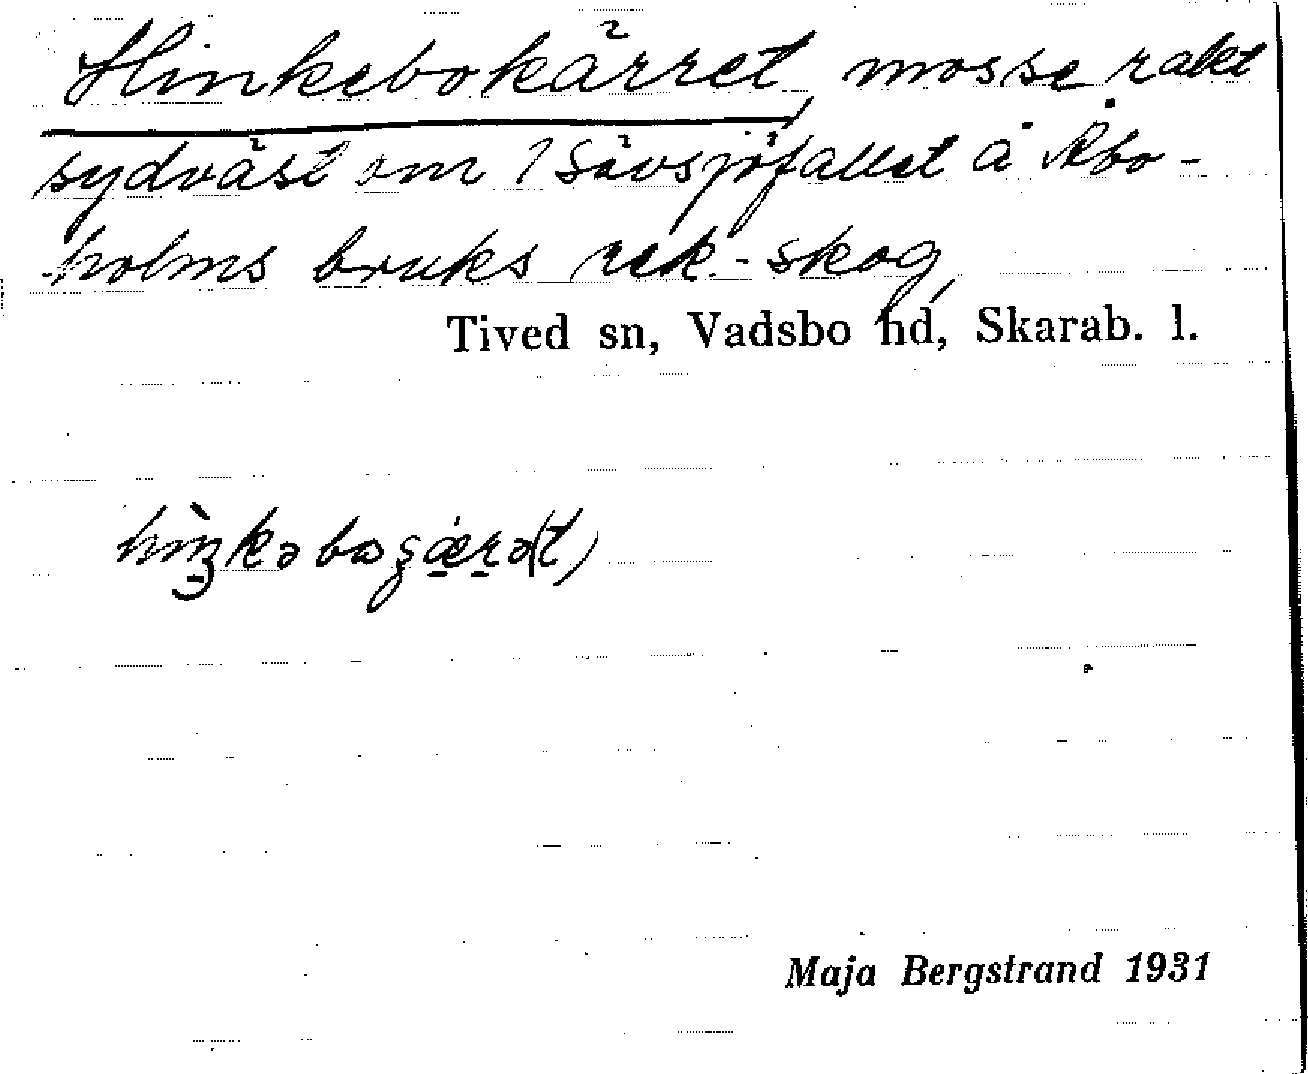 Hinkebokärret, mosse rakt
sydväst om 1 Sävsjöfallet å Åbo-
holms bruks rek.-skog,
Tived sn, Vadsbo hd, Skarab. l.
Maja Bergstrand 1931